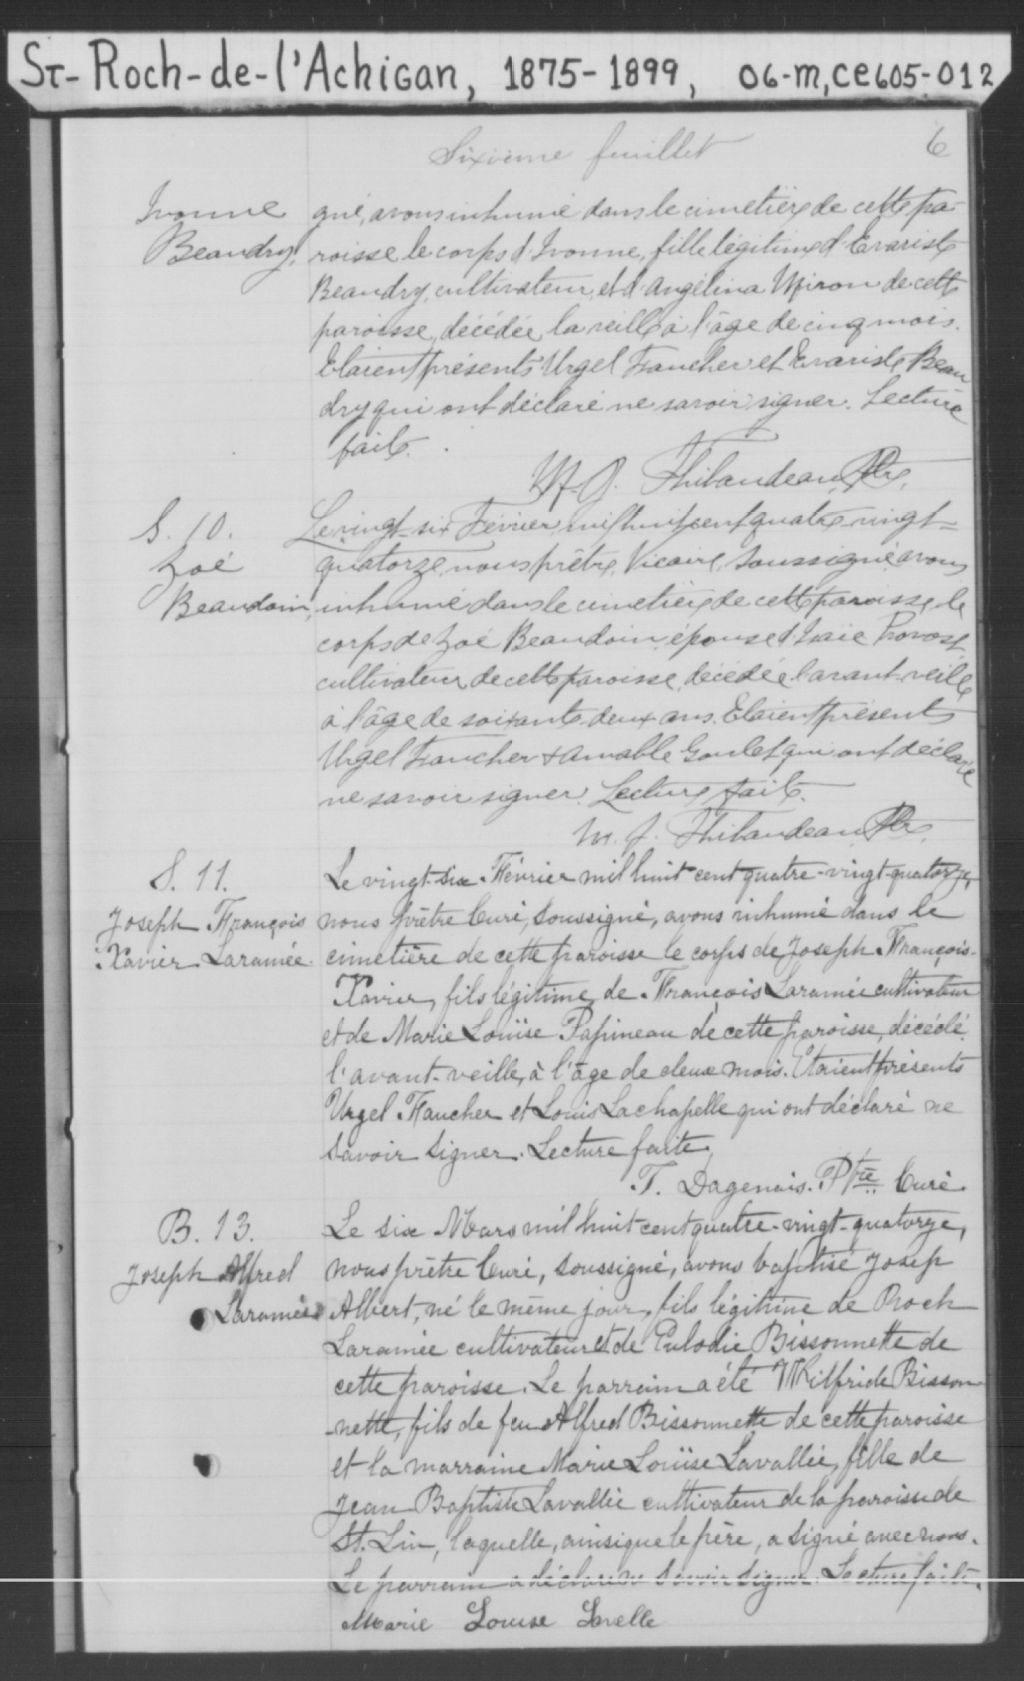 St-Roch-de-l'Achigan, 1875-1899, 06-M,CE605-012
Sixième feuillet
6
Ivonne
Beaudry.
gné, avons inhumé dans le cimetière de cette pa-
roisse le corps d'Ivonne, fille légitime d'Evariste
Beaudry, cultivateur, et d'Angélina Miron de cette
paroisse, décédée la veille à l'âge de cinq mois.
Etaient présents Urgel Faucher et Evariste Beau
dry qui ont déclaré ne savoir signer. Lecture
faite.
M. J. Thibaudeau, Ptre.
S. 10.
Zoé
Beaudoin,
Le vingt-six Février mil huit cent quatre-vingt-
quatorze, nous prêtre, Vicaire, soussigné avons
inhumé dans le cimetière de cette paroisse, le
corps de Zoé Beaudoin, épouse d'Isaïe Provost
cultivateur de cette paroisse, décédée l'avant-veille
à l'âge de soixante deux ans. Etaient présents
Urgel Faucher & Amable Goulet qui ont déclaré
ne savoir signer. Lecture faite.
M. J. Thibaudeau Ptre.
S. 11.
Joseph François
Xavier Laramée.
Le vingt-six Février mil huit cent quatre-vingt-quatorze,
nous prêtre Curé, soussigné, avons inhumé dans le
cimetière de cette paroisse le corps de Joseph François-
Xavier, fils légitime, de François Laramée cultivateur
et de Marie Louise Papineau de cette paroisse, décédé
l'avant-veille, à l'âge de deux mois. Etaient présents
Urgel Faucher et Louis Lachapelle qui ont déclaré ne
savoir signer. Lecture faite,
T. Dagenais. Ptre Curé
B. 13.
Joseph Alfred
Laramée
Le six Mars mil huit-cent quatre-vingt-quatorze,
nous prêtre Curé, soussigné, avons baptisé Josep
Albert, né le même jour, fils légitime de Roch
Laramée cultivateur et de Eulodie Bissonnette de
cette paroisse. Le parrain a été Wilfride Bisson
nette, fils de feu Alfred Bissonnette de cette paroisse
et la marraine Marie Louise Lavallée, fille de
Jean Baptiste Lavallée cultivateur de la paroisse de
St. Lin, laquelle, ainsi que le père, a signé avec nous.
Le parrain a déclaré ne savoir signer. Lecture faite.
Marie Louise